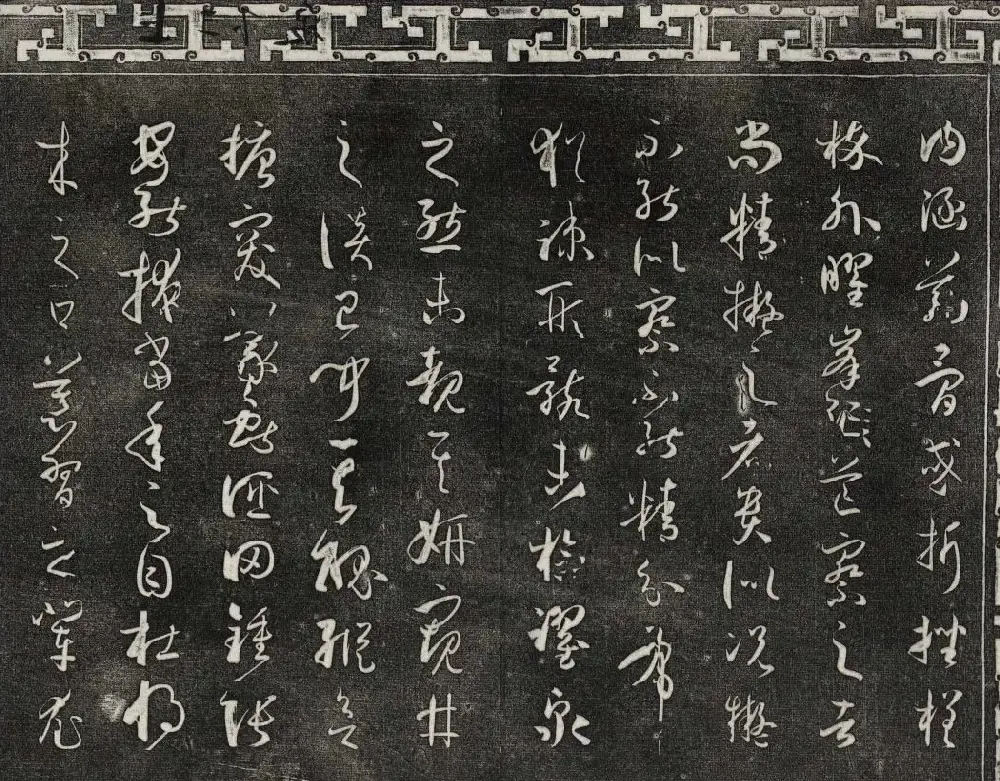 內涵筋骨或折挫槎
枿外曜峯芒察之者
尚精擬之者貴似況擬
不能似察不能精分布
猶疎形骸未檢躍泉
之態未覩其妍窺井
之談已聞其醜縱欲
搪突羲獻誣罔鍾張
安能掩當年之目杜將
來之口慕習之輩尤